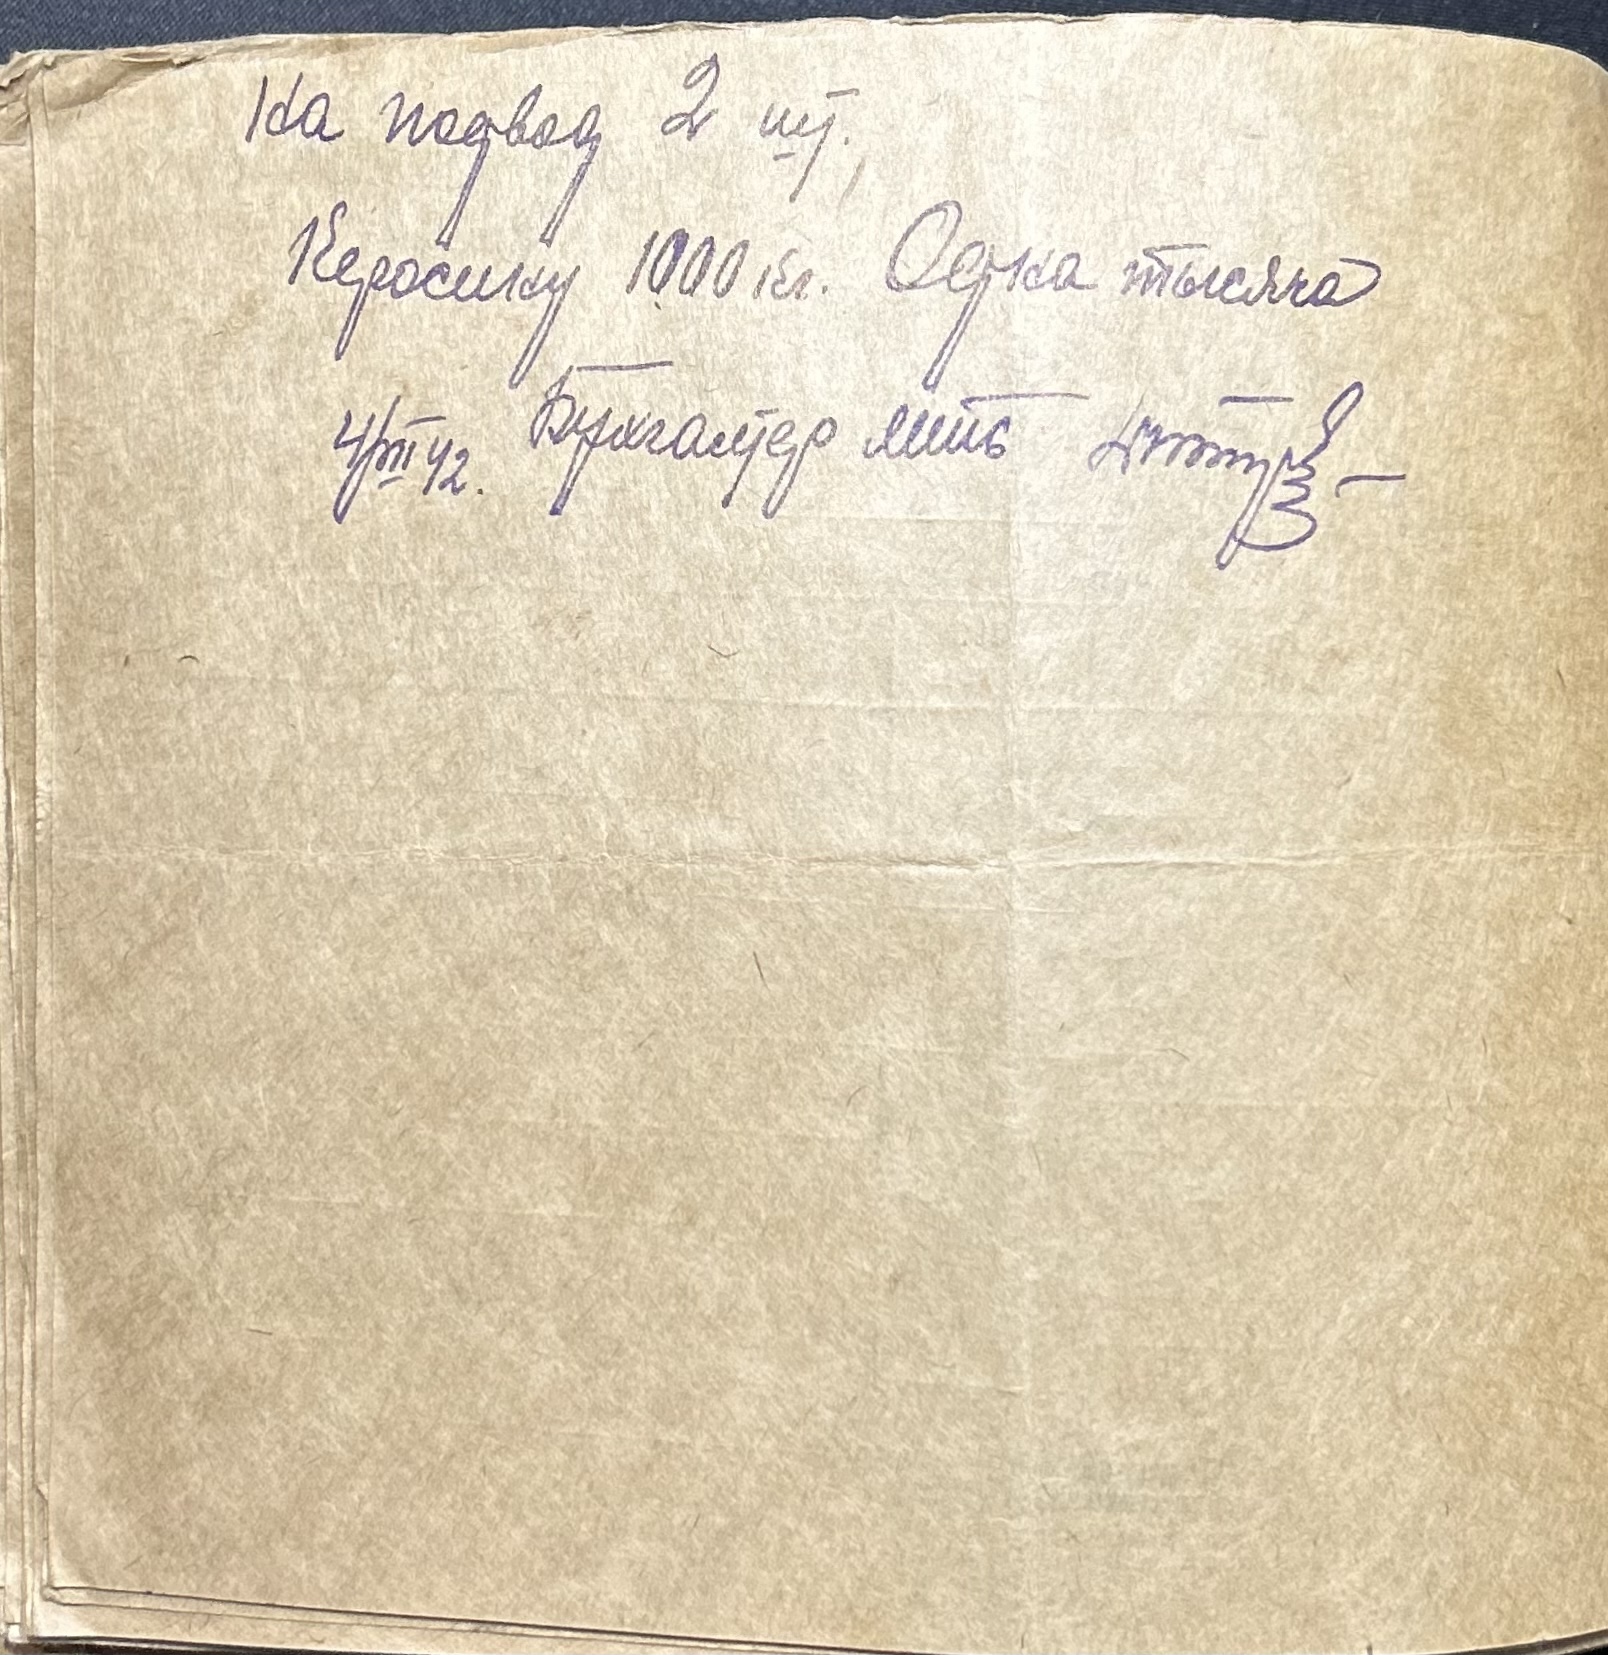 На подвод 2 шт.,
Керосину 1000 кг. Одна тысяча
4/VIII 42. Бухгалтер